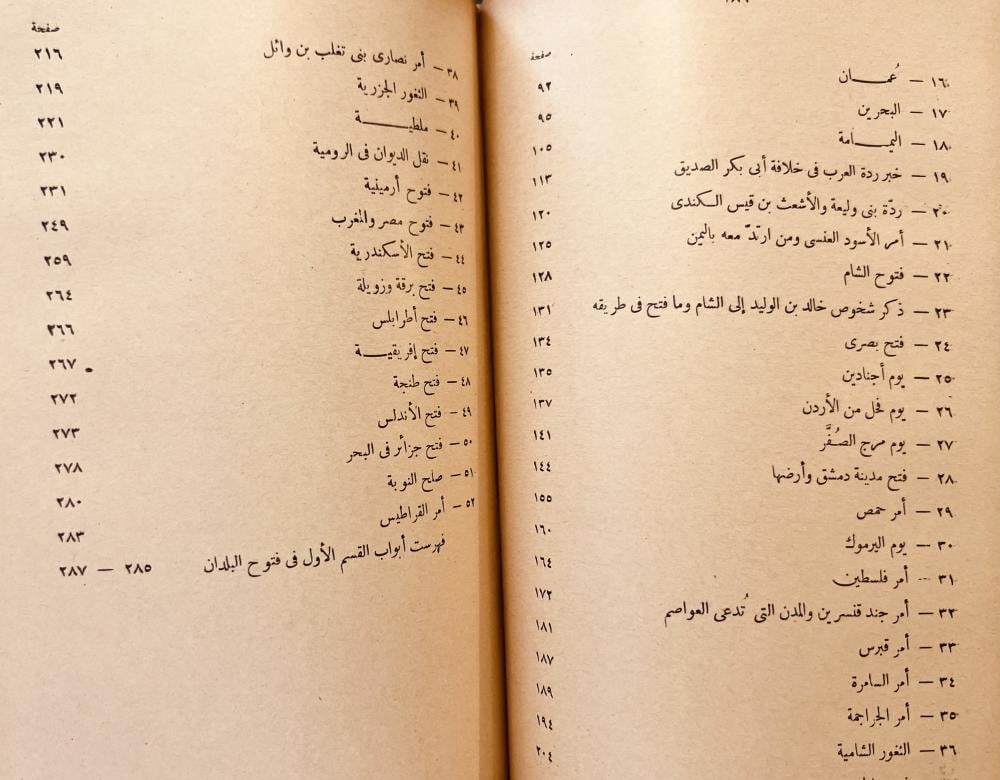 صفحة
١٦ — عُمـــان ٩٢
١٧ — البحرين ٩٥
١٨ — اليمـــامة ١٠٥
١٩ — خبر ردة العرب فى خلافة أبى بكر الصديق ١١٣
٢٠ — ردّة بنى وليعة والأشعث بن قيس الـكندى ١٢٠
٢١ — أمر الأسود العنسى ومن ارتدّ معه باليمن ١٢٥
٢٢ — فتوح الشام ١٢٨
٢٣ — ذكر شخوص خالد بن الوليد إلى الشام وما فتح فى طريقه ١٣١
٢٤ — فتح بصرى ١٣٤
٢٥ — يوم أجنادين ١٣٥
٢٦ — يوم فحل من الأردن ١٣٧
٢٧ — يوم مرج الصُفَّر ١٤١
٢٨ — فتح مدينة دمشق وأرضها ١٤٤
٢٩ — أمر حمص ١٥٥
٣٠ — يوم اليرموك ١٦٠
٣١ — أمر فلسطين ١٦٤
٣٢ — أمر جند قنسرين والمدن التى تُدعى العواصم ١٧٢
٣٣ — أمر قبرس ١٨١
٣٤ — أمر السامرة ١٨٧
٣٥ — أمر الجراجمة ١٨٩
٣٦ — الثغور الشامية ١٩٤
٢٠٤
صفحة
٣٨ — أمر نصارى بنى تغلب بن وائل ٢١٦
٣٩ — الثغور الجزرية ٢١٩
٤٠ — ملطيـــة ٢٢١
٤١ — نقل الديوان فى الرومية ٢٣٠
٤٢ — فتوح أرمينية ٢٣١
٤٣ — فتوح مصر والمغرب ٢٤٩
٤٤ — فتح الأسكندرية ٢٥٩
٤٥ — فتح برقة وزويلة ٢٦٤
٤٦ — فتح أطرابلس ٢٦٦
٤٧ — فتح إفريقيـــة ٢٦٧
٤٨ — فتح طنجة ٢٧٢
٤٩ — فتح الأندلس ٢٧٣
٥٠ — فتح جزائر فى البحر ٢٧٨
٥١ — صلح النوبة ٢٨٠
٥٢ — أمر القراطيس ٢٨٣
فهرست أبواب القسم الأول فى فتوح البلدان ٢٨٥ — ٢٨٧